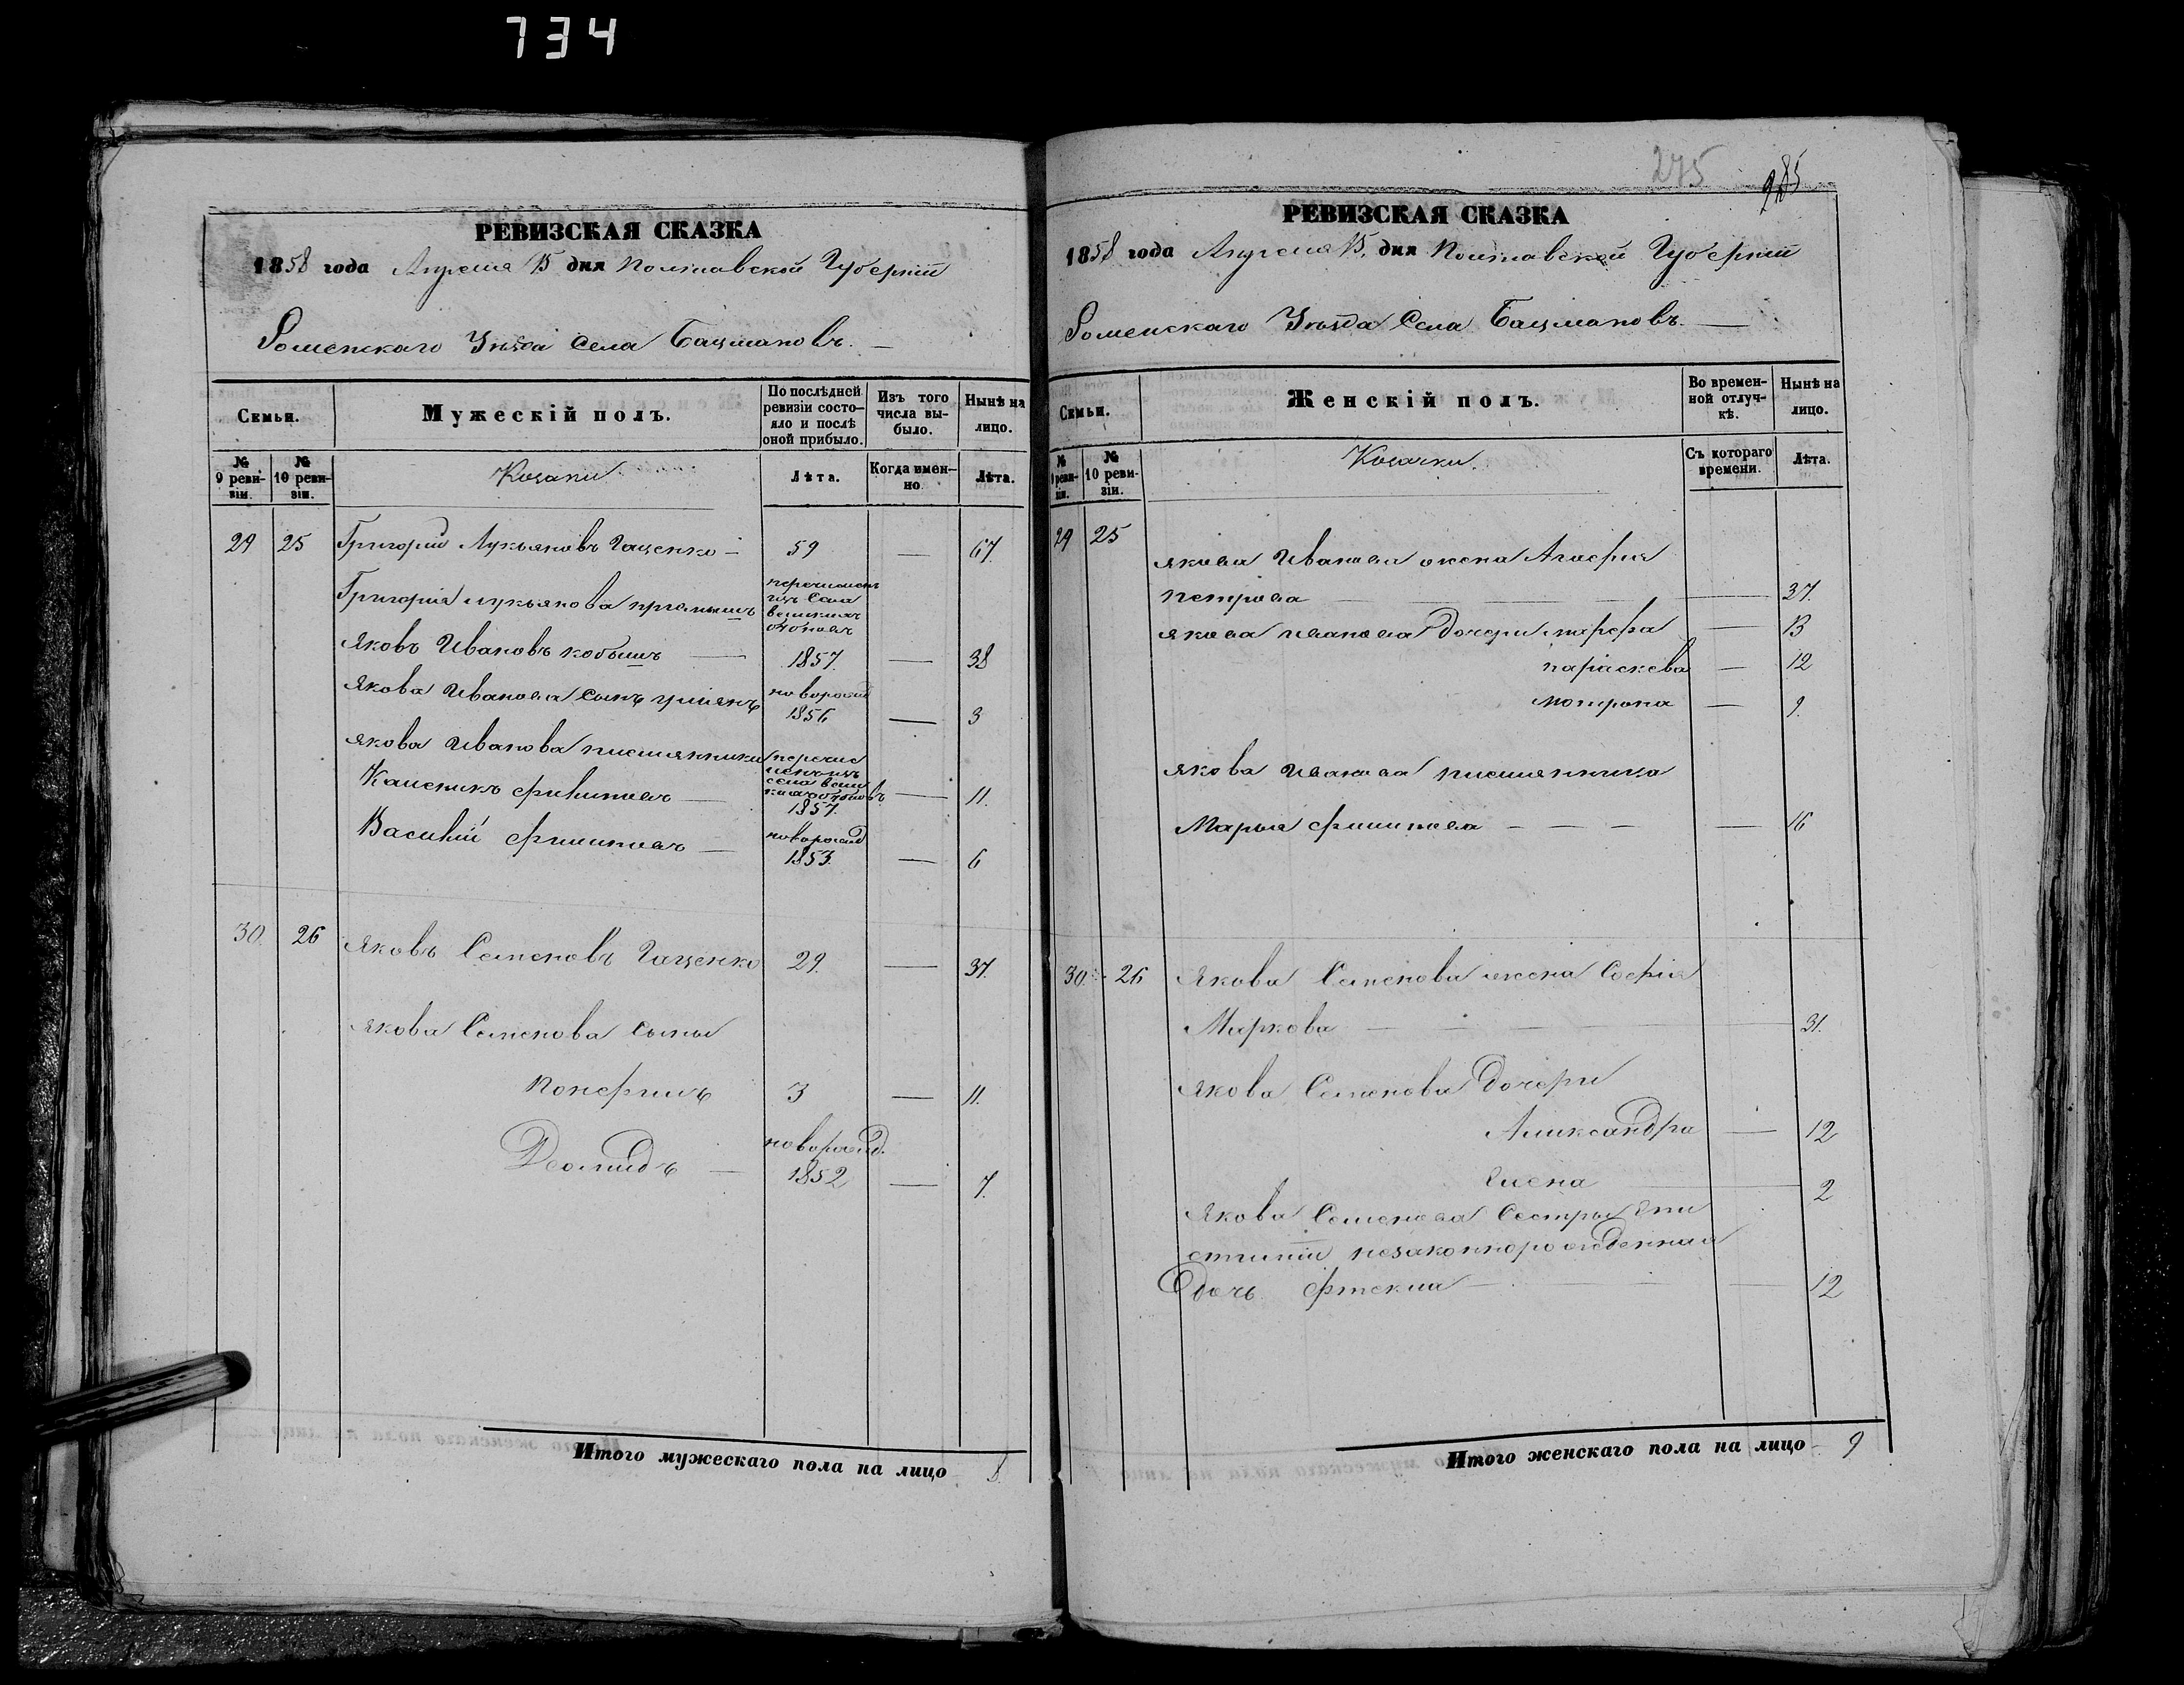 734
РЕВИЗСКАЯ СКАЗКА
1858 года Апреля 15 дня Полтавской Губернiи
Роменскаго Уѣзда Села Бацмановъ. —
Семьи.
Мужескій полъ.
По послѣдней ревизіи состояло и послѣ оной прибыло.
Изъ того числа выбыло.
Нынѣ на лицо.
№ 9 ревизіи.
№ 10 ревизіи.
Козаки
Лѣта.
Когда именно
Лѣта.
29 25 Григорій Лукьяновъ Гащенко — 59 — 67.
Григорія Лукьянова
перечисленъ
изъ Села
Великихъ
Яковъ Ивановъ — 1857. — 38
Якова Иванова сынъ
новорожд
1856 — 3
Якова Иванова племянники
перечис
ленъ изъ
села Вели
1857.
Каленикъ Филиповъ — — 11.
Василій Филиповъ —
новорожд
1853. — 6
30. 26 Яковъ Семеновъ Гащенко 29. — 37.
Якова Семенова сыны
3 — 11.
Деомидъ —
новорожд.
1852 — 7.
Итого мужескаго пола на лицо 8.
275 285
РЕВИЗСКАЯ СКАЗКА
1858 года Апреля 15. дня Полтавской Губернiи
Роменскаго Уѣзда Села Бацмановъ. —
Семьи.
Женскій полъ.
Во временной отлучкѣ.
Нынѣ на лицо.
№ 9 ревизіи.
№ 10 ревизіи.
Козачки.
Съ котораго времени.
Лѣта.
29 25
Якова Иванова жена Агафия
Петрова — — 37.
Якова Иванова дочери Марфа — 13
Параскева — 12
Мотрона — 9.
Якова Иванова племянника
Марья Филипова — — — — 16
30. 26 Якова Семенова жена Софія
Маркова — — — 31.
Якова Семенова Дочери
Александра — 12
Елена — 2
Якова Семенова Сестры Епи
стиміи незаконнорожденная
Дочь Фтекла — — — 12
Итого женскаго пола на лицо 9